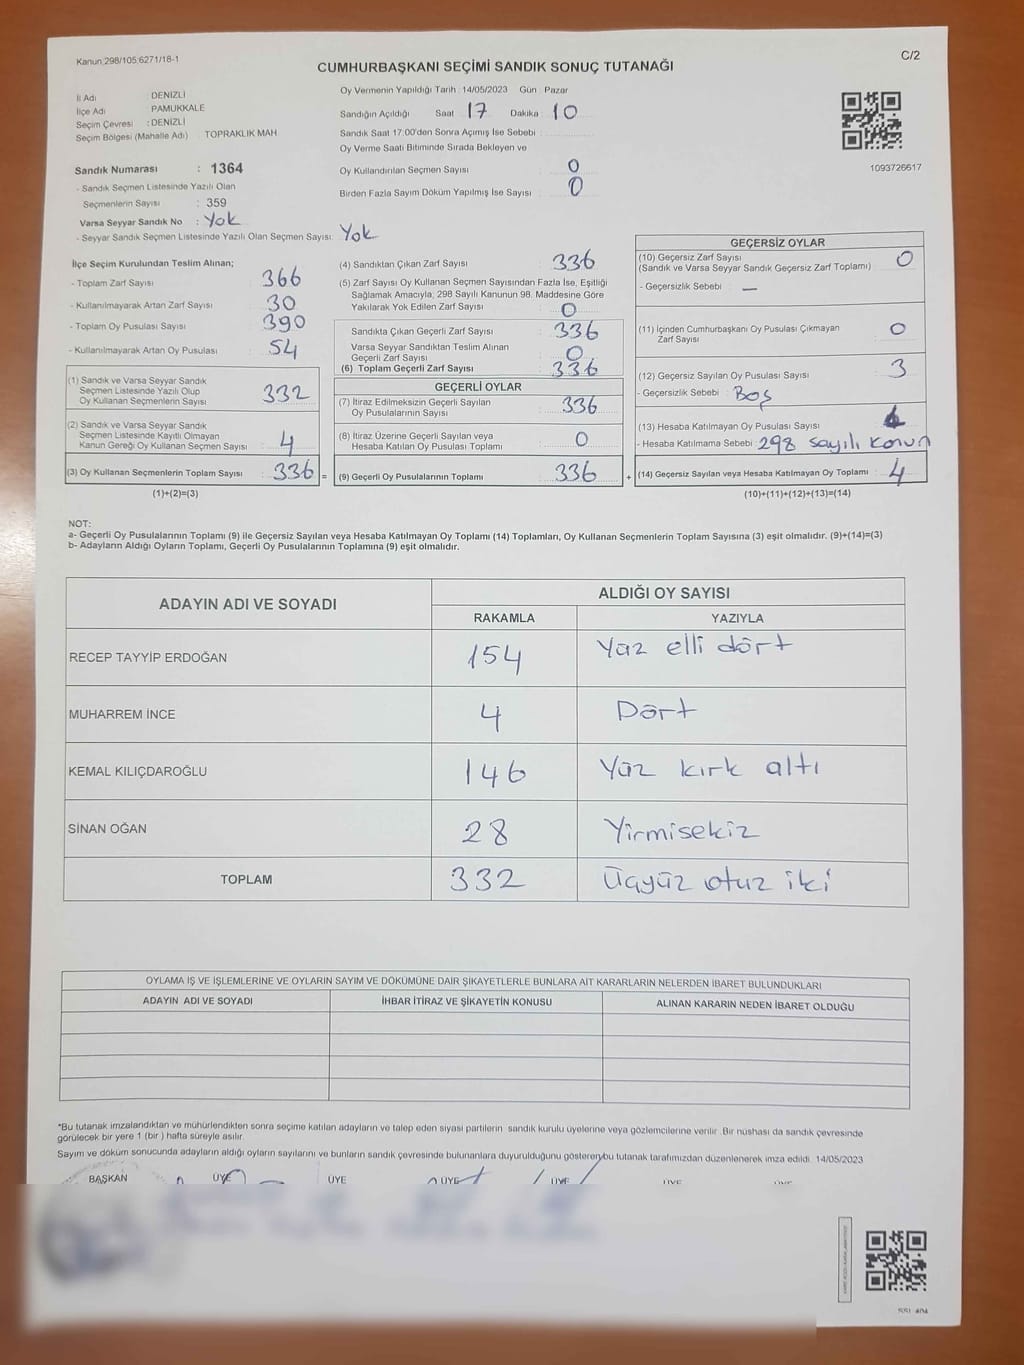 Kanun 298/105:6271/18-1
C/2
CUMHURBAŞKANI SEÇİMİ SANDIK SONUÇ TUTANAĞI
İl Adı : DENİZLİ
İlçe Adı : PAMUKKALE
Seçim Çevresi : DENİZLİ
Seçim Bölgesi (Mahalle Adı) : TOPRAKLIK MAH.
Oy Vermenin Yapıldığı Tarih : 14/05/2023 Gün : Pazar
Sandığın Açıldığı Saat 17 Dakika 10
Sandık Saat 17:00'den Sonra Açımış İse Sebebi :
Oy Verme Saati Bitiminde Sırada Bekleyen ve
Oy Kullandırılan Seçmen Sayısı : 0
Birden Fazla Sayım Döküm Yapılmış İse Sayısı : 0
1093726617
Sandık Numarası : 1364
- Sandık Seçmen Listesinde Yazılı Olan
Seçmenlerin Sayısı : 359
Varsa Seyyar Sandık No : Yok
- Seyyar Sandık Seçmen Listesinde Yazılı Olan Seçmen Sayısı: Yok
İlçe Seçim Kurulundan Teslim Alınan;
- Toplam Zarf Sayısı : 366
- Kullanılmayarak Artan Zarf Sayısı : 30
- Toplam Oy Pusulası Sayısı : 390
- Kullanılmayarak Artan Oy Pusulası : 54
(1) Sandık ve Varsa Seyyar Sandık
Seçmen Listesinde Yazılı Olup
Oy Kullanan Seçmenlerin Sayısı : 332
(2) Sandık ve Varsa Seyyar Sandık
Seçmen Listesinde Kayıtlı Olmayan
Kanun Gereği Oy Kullanan Seçmen Sayısı : 4
(3) Oy Kullanan Seçmenlerin Toplam Sayısı : 336 =
(1)+(2)=(3)
(4) Sandıktan Çıkan Zarf Sayısı : 336
(5) Zarf Sayısı Oy Kullanan Seçmen Sayısından Fazla İse, Eşitliği
Sağlamak Amacıyla; 298 Sayılı Kanunun 98. Maddesine Göre
Yakılarak Yok Edilen Zarf Sayısı : 0
Sandıkta Çıkan Geçerli Zarf Sayısı : 336
Varsa Seyyar Sandıktan Teslim Alınan
Geçerli Zarf Sayısı : 0
(6) Toplam Geçerli Zarf Sayısı : 336
GEÇERLİ OYLAR
(7) İtiraz Edilmeksizin Geçerli Sayılan
Oy Pusulalarının Sayısı : 336
(8) İtiraz Üzerine Geçerli Sayılan veya
Hesaba Katılan Oy Pusulaları Toplamı : 0
(9) Geçerli Oy Pusulalarının Toplamı : 336 +
GEÇERSİZ OYLAR
(10) Geçersiz Zarf Sayısı
(Sandık ve Varsa Seyyar Sandık Geçersiz Zarf Toplamı) : 0
- Geçersizlik Sebebi : —
(11) İçinden Cumhurbaşkanı Oy Pusulası Çıkmayan
Zarf Sayısı : 0
(12) Geçersiz Sayılan Oy Pusulası Sayısı : 3
- Geçersizlik Sebebi : Boş
(13) Hesaba Katılmayan Oy Pusulası Sayısı :
- Hesaba Katılmama Sebebi : 298 sayılı konun
(14) Geçersiz Sayılan veya Hesaba Katılmayan Oy Toplamı : 4
(10)+(11)+(12)+(13)=(14)
NOT:
a- Geçerli Oy Pusulalarının Toplamı (9) ile Geçersiz Sayılan veya Hesaba Katılmayan Oy Toplamı (14) Toplamları, Oy Kullanan Seçmenlerin Toplam Sayısına (3) eşit olmalıdır. (9)+(14)=(3)
b- Adayların Aldığı Oyların Toplamı, Geçerli Oy Pusulalarının Toplamına (9) eşit olmalıdır.
ADAYIN ADI VE SOYADI ALDIĞI OY SAYISI
RAKAMLA YAZIYLA
RECEP TAYYİP ERDOĞAN 154 Yüz elli dört
MUHARREM İNCE 4 Dört
KEMAL KILIÇDAROĞLU 146 Yüz kırk altı
SİNAN OĞAN 28 Yirmisekiz
TOPLAM 332 Üçyüz otuz iki
OYLAMA İŞ VE İŞLEMLERİNE VE OYLARIN SAYIM VE DÖKÜMÜNE DAİR ŞİKAYETLERLE BUNLARA AİT KARARLARIN NELERDEN İBARET BULUNDUKLARI
ADAYIN ADI VE SOYADI İHBAR İTİRAZ VE ŞİKAYETİN KONUSU ALINAN KARARIN NEDEN İBARET OLDUĞU
*Bu tutanak imzalandıktan ve mühürlendikten sonra seçime katılan adayların ve talep eden siyasi partilerin sandık kurulu üyelerine veya gözlemcilerine verilir. Bir nüshası da sandık çevresinde
görülecek bir yere 1 (bir ) hafta süreyle asılır.
Sayım ve döküm sonucunda adayların aldığı oyların sayılarını ve bunların sandık çevresinde bulunanlara duyurulduğunu gösteren bu tutanak tarafımızdan düzenlenerek imza edildi. 14/05/2023
BAŞKAN ÜYE ÜYE ÜYE ÜYE ÜYE ÜYE